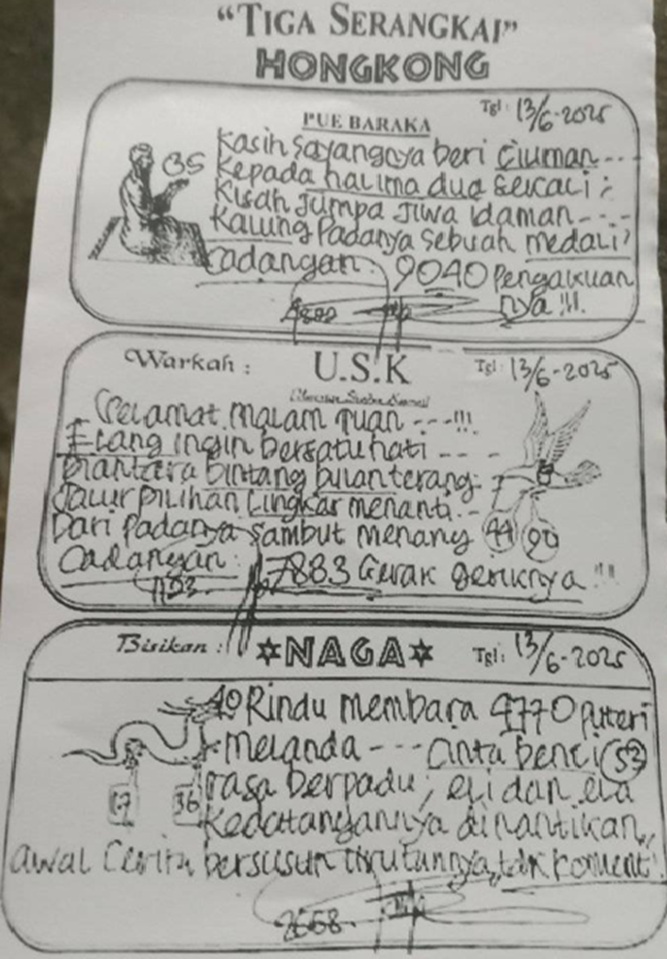 "TIGA SERANGKAI"
HONGKONG
PUE BARAKA
Tgl: 13/6-2025
35
Kasih Sayangnya beri Ciuman---
Kepada halima dua serkali;
Kisah Jumpa Jiwa Idaman----
Kalung Padanya Sebuah medali?
Cadangan: 9040 Pengakuan
nya!!!
Warkah :
U.S.K
Tgl: 13/6-2025
Selamat malam Tuan ---!!!
Elang ingin bersatu hati ----
Diantara bintang bulan terang-
Jalur Pilihan Lingkar menanti--
Dari Padanya Sambut Menang 44 90
Cadangan: 7883 Gerak geriknya!!!
1123
Bisikan :
NAGA
Tgl: 13/6-2025
40 Rindu membara 4770 Puteri
Melanda --- Cinta benci 53
17 36 rasa berpadu; eli dan ela
Kedatangannya dinantikan,,
awal Cerita bersusun Urutannya, tak Koment!
2668.